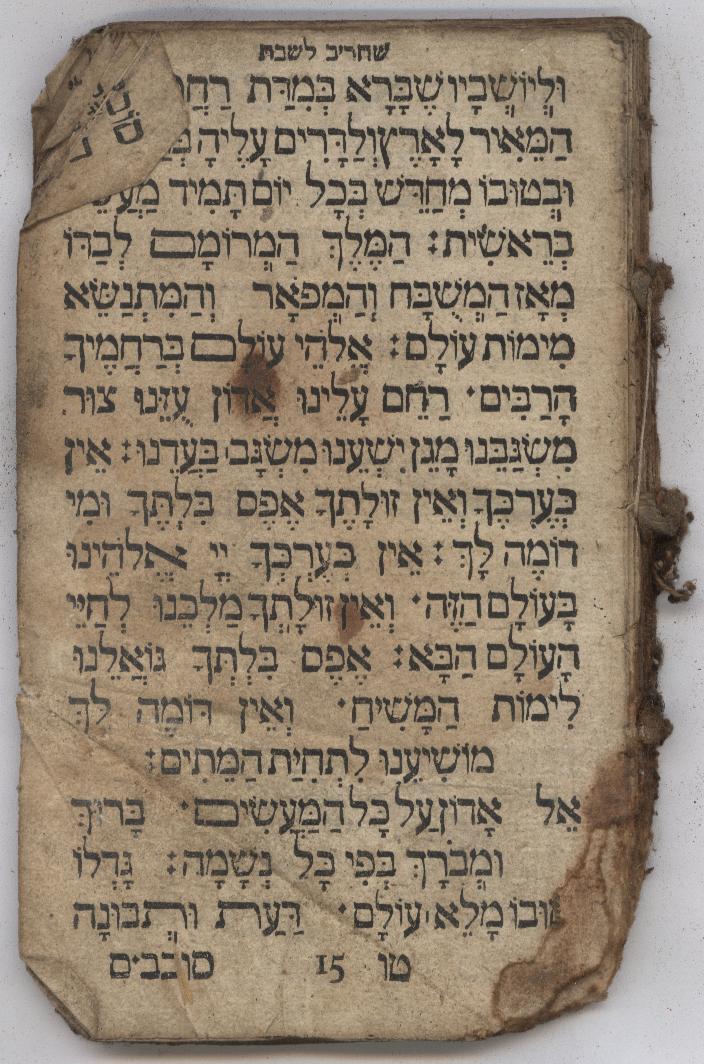 שחרית לשבת
וּלְיוֹשְׁבָיו שֶׁבָּרָא בְּמִדַּת
הַמֵּאִיר לָאָרֶץ וְלַדָּרִים עָלֶיהָ
וּבְטוּבוֹ מְחַדֵּשׁ בְּכָל יוֹם תָּמִיד
בְרֵאשִׁית: הַמֶּלֶךְ הַמְרוֹמָם לְבַדּוֹ
מֵאָז הַמְשֻׁבָּח וְהַמְפֹאָר וְהַמִּתְנַשֵּׂא
מִימוֹת עוֹלָם: אֱלֹהֵי עוֹלָם בְּרַחֲמֶיךָ
הָרַבִּים· רַחֵם עָלֵינוּ אֲדוֹן עֻזֵּנוּ צוּר
מִשְׂגַּבֵּנוּ מָגֵן יִשְׁעֵנוּ מִשְׂגָּב בַּעֲדֵנוּ: אֵין
כְּעֶרְכֶּךָ וְאֵין זוּלָתֶךָ אֶפֶס בִּלְתֶּךָ וּמִי
דוֹמֶה לָּךְ: אֵין כְּעֶרְכְּךָ יְיָ אֱלֹהֵינוּ
בָּעוֹלָם הַזֶּה· וְאֵין זוּלָתְךָ מַלְכֵּנוּ לְחַיֵּי
הָעוֹלָם הַבָּא: אֶפֶס בִּלְתְּךָ גּוֹאֲלֵנוּ
לִימוֹת הַמָּשִׁיחַ· וְאֵין דּוֹמֶה לְּךָ
מוֹשִׁיעֵנוּ לִתְחִיַּת הַמֵּתִים:
אֵל אָדוֹן עַל כָּל הַמַּעֲשִׂים· בָּרוּךְ
וּמְבֹרָךְ בְּפִי כָּל נְשָׁמָה: גָּדְלוֹ
וטוּבוֹ מָלֵא עוֹלָם· דַּעַת וּתְבוּנָה
טו 15 סובבים